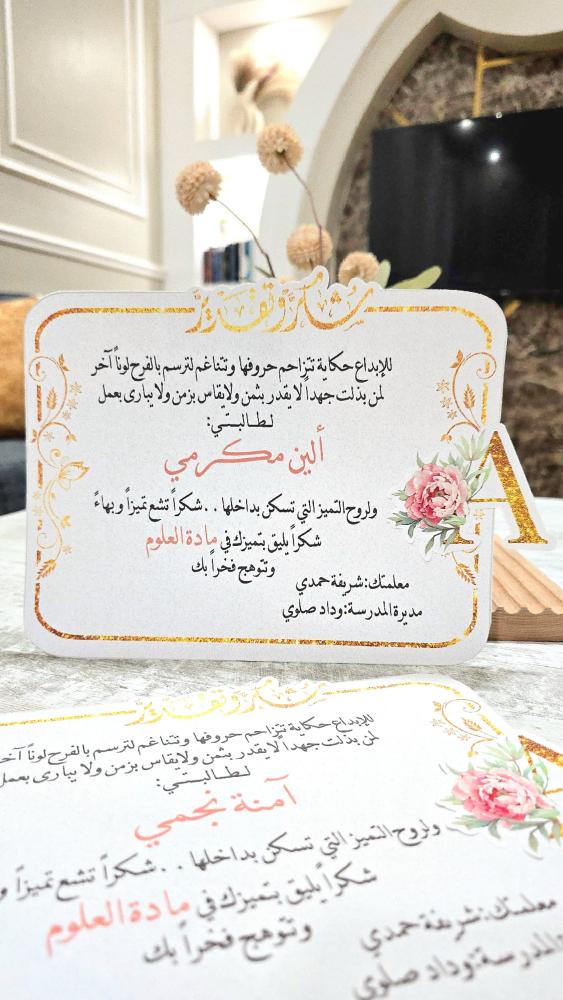 شكر وتقدير
للإبداع حكاية تتزاحم حروفها وتتناغم لترسم بالفرح لوناً آخر
لمن بذلت جهداً لا يقدر بثمن ولا يقاس بزمن ولا يبارى بعمل
لطالبتي:
ألين مكرمي
ولروح التميز التي تسكن بداخلها . . شكراً تشع تميزاً وبهاءً
شكراً يليق بتميزك في مادة العلوم
وتتوهج فخراً بك
معلمتك: شريفة حمدي
مديرة المدرسة: وداد صلوي
A
شكر وتقدير
للإبداع حكاية تتزاحم حروفها وتتناغم لترسم بالفرح لوناً آخر
لمن بذلت جهداً لا يقدر بثمن ولا يقاس بزمن ولا يبارى بعمل
لطالبتي:
آمنة نجمي
ولروح التميز التي تسكن بداخلها . . شكراً تشع تميزاً و
شكراً يليق بتميزك في مادة العلوم
وتتوهج فخراً بك
معلمتك: شريفة حمدي
المدرسة: وداد صلوي